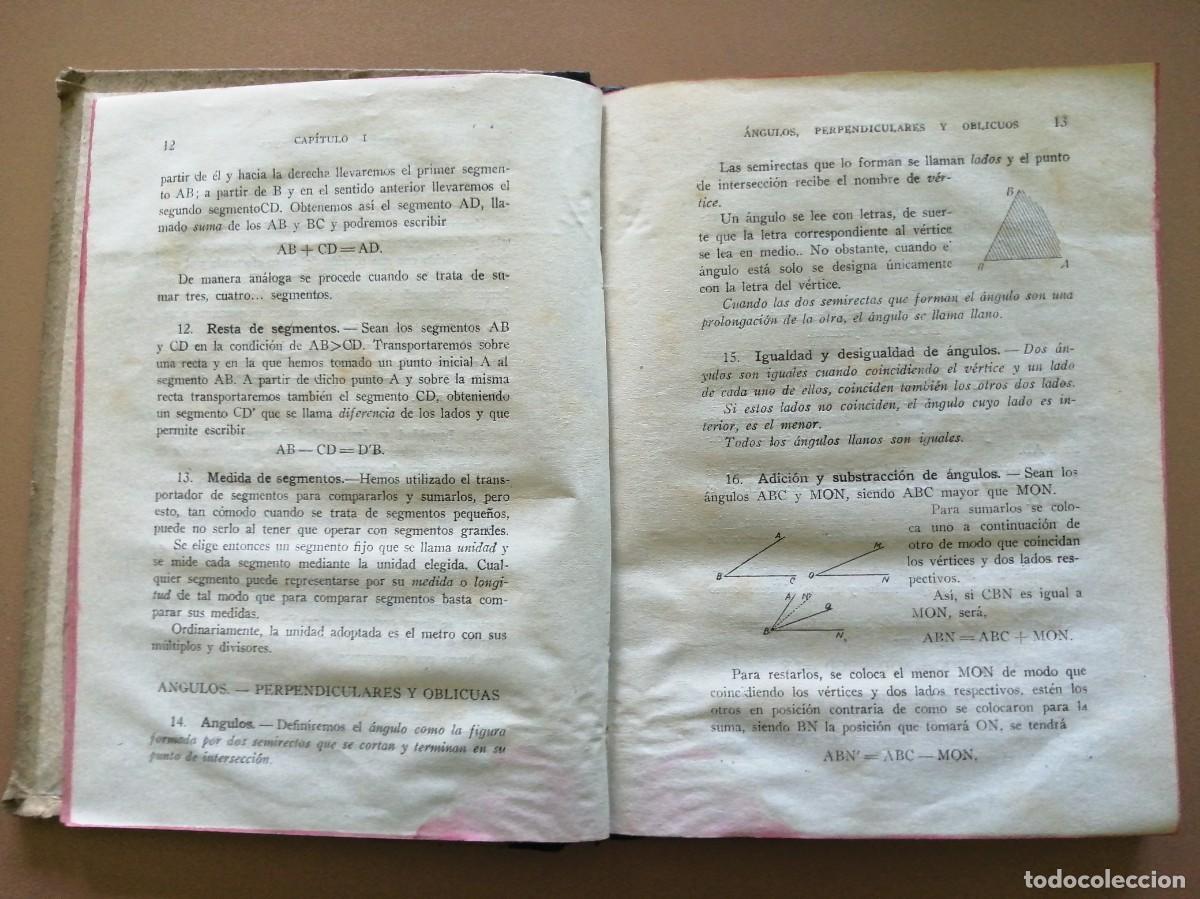 12 CAPÍTULO I
partir de él y hacia la derecha llevaremos el primer segmen-
to AB; a partir de B y en el sentido anterior llevaremos el
segundo segmentoCD. Obtenemos así el segmento AD, lla-
mado suma de los AB y BC y podremos escribir
AB + CD = AD.
De manera análoga se procede cuando se trata de su-
mar tres, cuatro... segmentos.
12. Resta de segmentos. — Sean los segmentos AB
y CD en la condición de AB>CD. Transportaremos sobre
una recta y en la que hemos tomado un punto inicial A al
segmento AB. A partir de dicho punto A y sobre la misma
recta transportaremos también el segmento CD, obteniendo
un segmento CD' que se llama diferencia de los lados y que
permite escribir
AB — CD = D'B.
13. Medida de segmentos.—Hemos utilizado el trans-
portador de segmentos para compararlos y sumarlos, pero
esto, tan cómodo cuando se trata de segmentos pequeños,
puede no serlo al tener que operar con segmentos grandes.
Se elige entonces un segmento fijo que se llama unidad y
se mide cada segmento mediante la unidad elegida. Cual-
quier segmento puede representarse por su medida o longi-
tud de tal modo que para comparar segmentos basta com-
parar sus medidas.
Ordinariamente, la unidad adoptada es el metro con sus
múltiplos y divisores.
ANGULOS. — PERPENDICULARES Y OBLICUAS
14. Angulos. — Definiremos el ángulo como la figura
formada por dos semirectas que se cortan y terminan en su
punto de intersección.
ÁNGULOS, PERPENDICULARES Y OBLICUOS 13
Las semirectas que lo forman se llaman lados y el punto
de intersección recibe el nombre de vér-
tice.
Un ángulo se lee con letras, de suer-
te que la letra correspondiente al vértice
se lea en medio.. No obstante, cuando e
ángulo está solo se designa únicamente
con la letra del vértice.
B
A
Cuando las dos semirectas que forman el ángulo son una
prolongación de la otra, el ángulo se llama llano.
15. Igualdad y desigualdad de ángulos. — Dos án-
gulos son iguales cuando coincidiendo el vértice y un lado
de cada uno de ellos, coinciden también los otros dos lados.
Si estos lados no coinciden, el ángulo cuyo lado es in-
terior, es el menor.
Todos los ángulos llanos son iguales.
16. Adición y substracción de ángulos. — Sean los
ángulos ABC y MON, siendo ABC mayor que MON.
Para sumarlos se colo-
ca uno a continuación de
otro de modo que coincidan
los vértices y dos lados res-
pectivos.
Así, si CBN es igual a
MON, será,
A
B C
M
O N
A N'
B N
ABN = ABC + MON.
Para restarlos, se coloca el menor MON de modo que
coincidiendo los vértices y dos lados respectivos, estén los
otros en posición contraria de como se colocaron para la
suma, siendo BN la posición que tomará ON, se tendrá
ABN' = ABC — MON.
todocoleccion